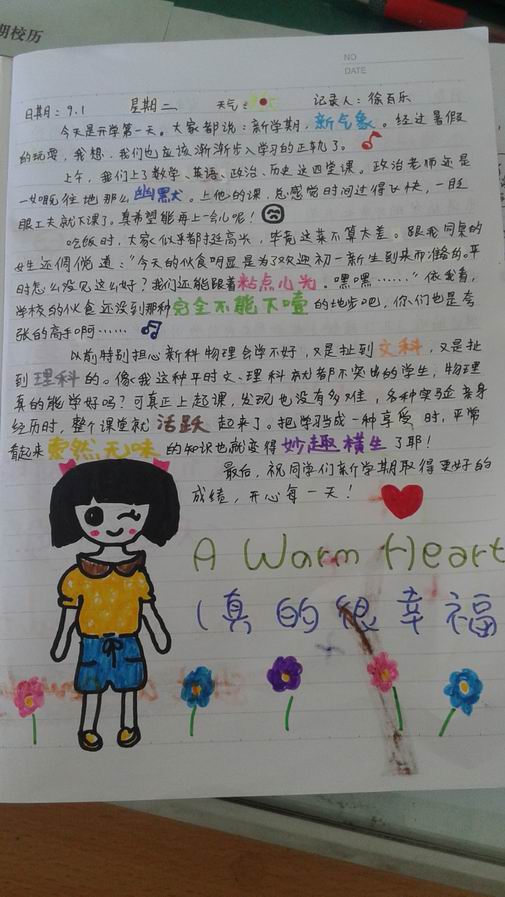 期校历
NO
DATE
日期：9.1 星期二 天气： 记录人：徐百乐
今天是开学第一天。大家都说：新学期，新气象。经过暑假
的玩耍，我想，我们也应该渐渐步入学习的正轨了。
上午，我们上了数学、英语、政治、历史这四堂课。政治老师还是
一如既往地那么幽默犬。上他的课，总感觉时间过得飞快，一眨
眼工夫就下课了。真希望能再上一会儿呢！
吃饭时，大家似乎都挺高兴，毕竟这菜不算太差。跟我同桌的
女生还倜傥道：“今天的伙食明显是为了欢迎初一新生到来而准备的。平
时怎么没见这么好？我们还能跟着粘点儿光。嘿嘿……”依我看，
学校的伙食还没到那种完全不能下噎的地步吧，你们也是夸
张的高手啊……
以前特别担心新科物理会学不好，又是扯到文科，又是扯
到理科的。像我这种平时文、理科成都不突出的学生，物理
真的能学好吗？可真正上起课，发现也没有多难，各种实验亲身
经历时，整个课堂就活跃起来了。把学习当成一种享受时，平常
看起来索然无味的知识也就变得妙趣横生了耶！
最后，祝同学们新学期取得更好的
成绩，开心每一天！
A Warm Heart
（真的很幸福